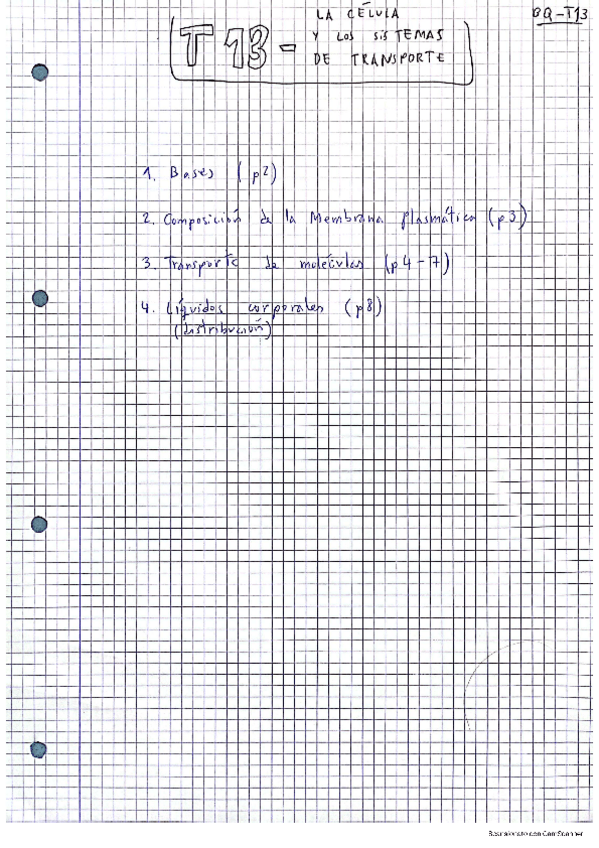 BQ-T13
T13-
LA CÉLULA
Y LOS SISTEMAS
DE TRANSPORTE
1. Bases (p2)
2. Composición de la Membrana plasmática (p3)
3. Transporte de moléculas (p4-7)
4. Líquidos corporales (p8)
(distribución)
Escaneado con CamScanner